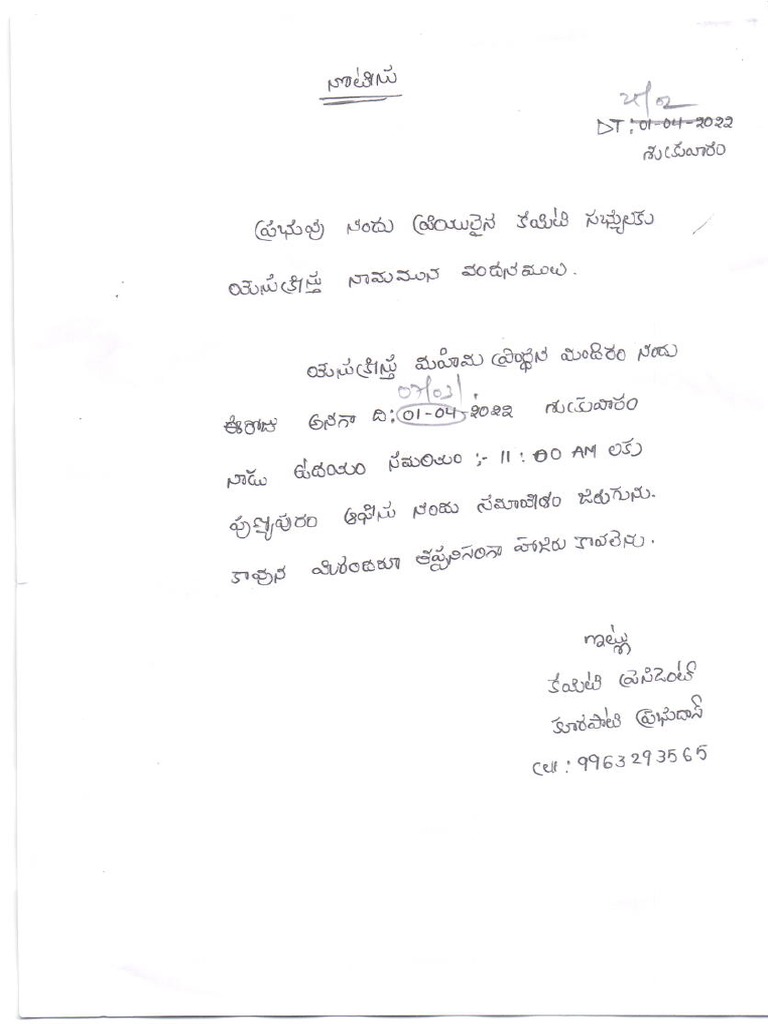 నోటీసు
DT: 01-04-2022
శుక్రవారం
ప్రభువు నందు ప్రియులైన కమిటి సభ్యులకు
యేసుక్రీస్తు నామమున వందనములు.
యేసుక్రీస్తు మహిమ ప్రార్థన మందిరం నందు
ఈరోజు అనగా ది: 01-04-2022 శుక్రవారం
నాడు ఉదయం సమయం :- 11:00 AM లకు
పుణ్యపురం ఆఫీసు నందు సమావేశం జరుగును.
కావున మీరందరూ తప్పనిసరిగా హాజరు కావలెను.
ఇట్లు
కమిటి ప్రెసిడెంట్
కూరపాటి ప్రభుదాస్
Cell: 9963293565